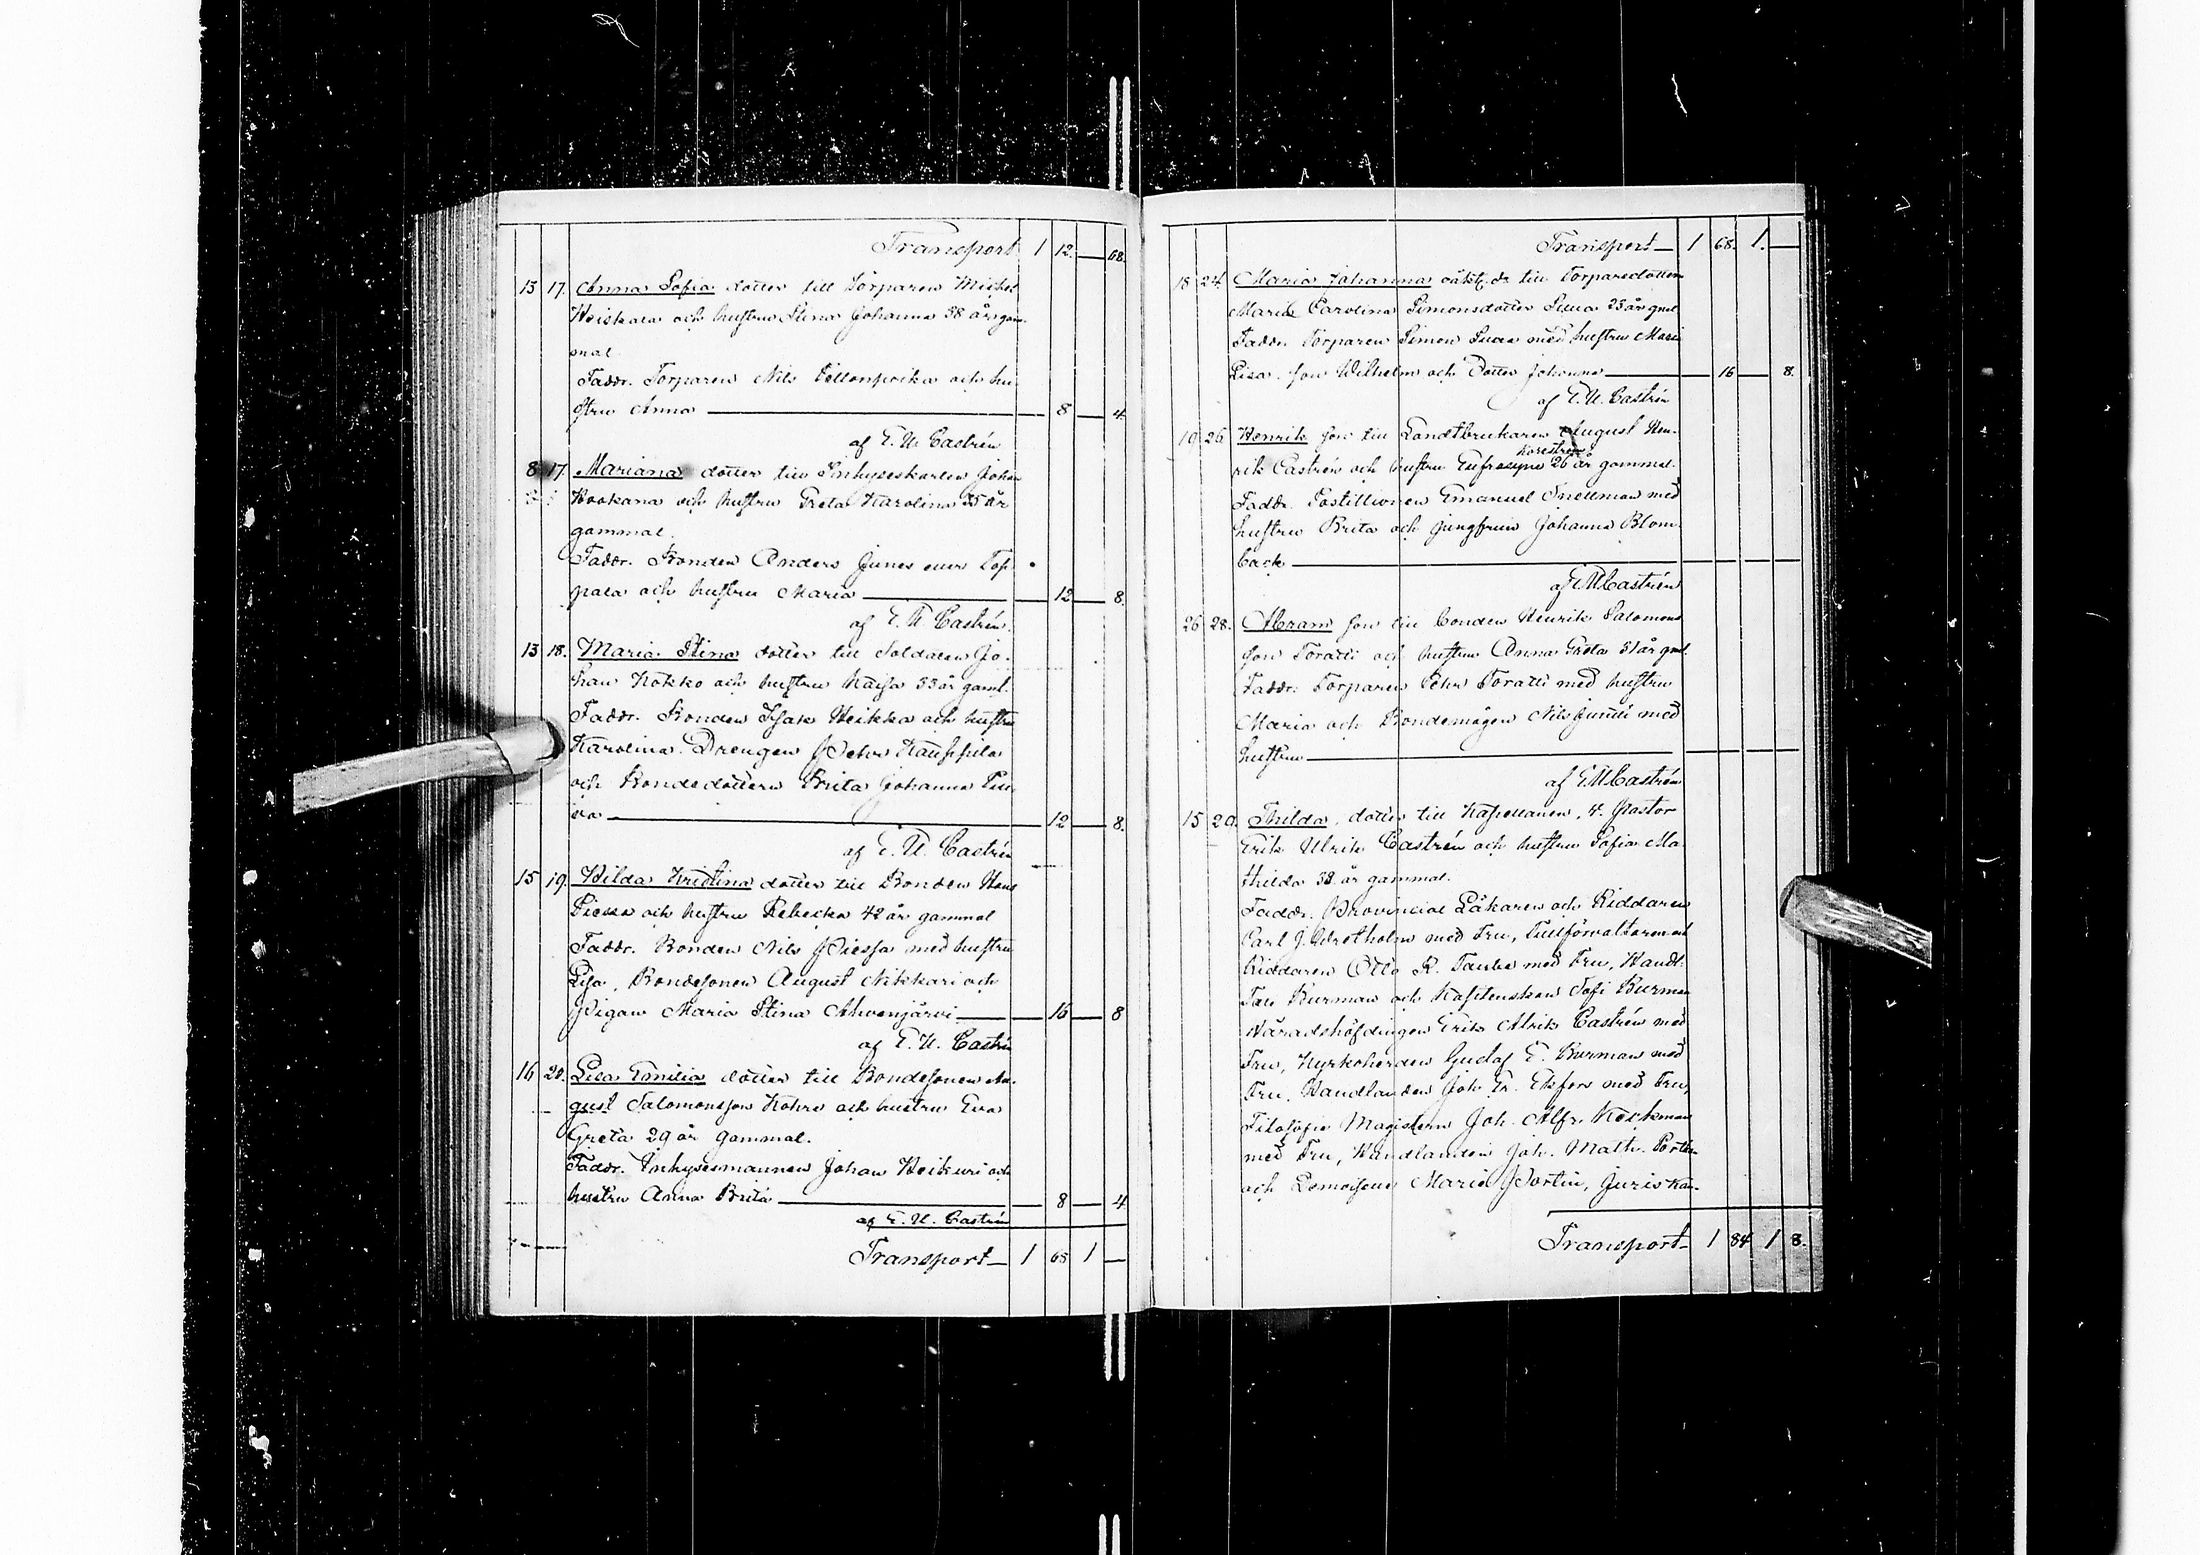 Transport 1 12 — 68.
13 17. Anna Sofia dotter till Torparen Michel
Heiskala och hustru Stina Johanna 38 år gam
mal
Faddr. Torparen Nils och hu
stru Anna — 8 — 4.
af E. U. Castrén
8 17. Mariana dotter till Inhyseskarlen Johan
Kookana och hustru Greta Karolina 35 år
gammal.
Faddr. Bonden Anders Junes eller Top
pala och hustru Maria — 12 — 8.
af E. U. Castrén.
13 18. Maria Stina dotter till Soldaten Jo-
han Kokko och hustru Kaisa 33 år gaml.
Faddr. Bonden Isak Heikka och hustru
Karolina. Drengen Pehr Kauppila
och Bondedottern Brita Johanna
— 12 — 8.
af E. U. Castrén
15 19. Hilda Kristina dotter till Bonden Hans
Piessa och hustru Rebecka 42 år gammal
Faddr. Bonden Nils Piessa med hustru
Lisa, Bondesonen August Nikkari och
Pigan Maria Stina Ahvenjärvi — 16 — 8
af E. U. Castrén
16 20. Lisa Emilia dotter till Bondesonen Au-
gust Salomonsson och hustru Eva
Greta 29 år gammal.
Faddr. Inhysesmannen Johan Heikuri och
hustru Anna Brita — 8 — 4
af E. U. Castrén
Transport — 1 68 1 —
Transport — 1 68. 1. —
18 24. Maria Johanna oäkt. dr till Torparedottern
Maria Carolina Simonsdotter 23 år gml
Faddr. Torparen Simon med hustru Maria
Lisa. son Wilhelm och Dotter Johanna — 16 — 8.
af E. U. Castrén
10 26. Henrik son till Landtbrukaren August Hen-
rik Castrén och hustru Eufrosyne 26 år gammal.
Faddr. Postillionen Emanuel Snellman med
hustru Brita och Jungfrun Johanna Blom-
back —
af E. U. Castrén
26 28. Abram son till bonden Henrik Salomons
son Poratti och hustru Anna Greta 31 år gml.
Faddr. Torparen Pehr Poratti med hustru
Maria och Bondemågen Nils Juntti med
hustru —
af E. U. Castrén
15 20. Thilda, dotter till Kapellanen, v. Pastor
Erik Ulrik Castrén och hustru Sofia Ma-
thilda 38 år gammal.
Faddr. Provincial Läkaren och Riddaren
Carl J. Wretholm med Fru, Tullförvaltaren och
Riddaren Otto R. med Fru, Handl.
Burman och Kaptenskan Sofi Burman
Häradshöfdingen Erik Alrik Castrén med
Fru, Kyrkoherden Gustaf E. Burman med
Fru, Handlanden Joh. Fr. Ekfors med Fru,
Filosofie Magistern Joh. Alfr. Keckman
med Fru, Handlanden Joh. Math. Portin
och Demoisellen Maria Portin, Juris Kan-
Transport — 1 84 1 8.